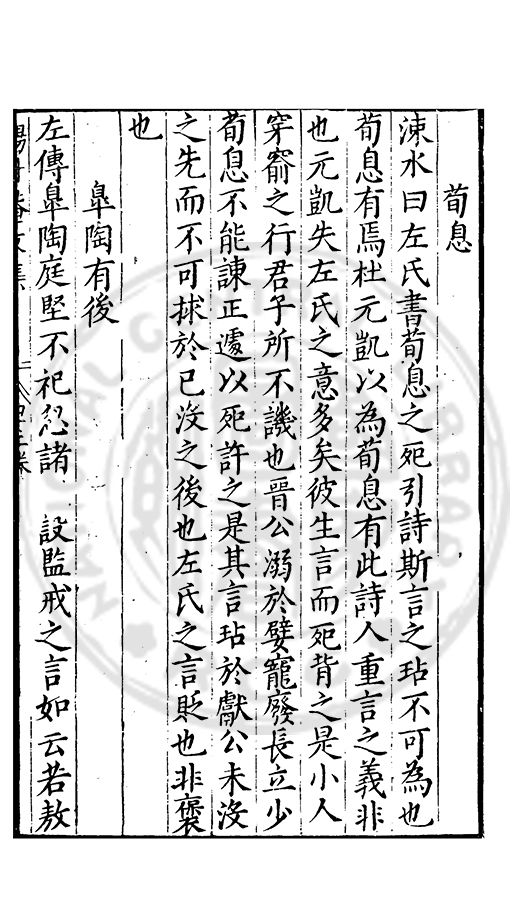 荀息
涑水曰左氏書荀息之死引詩斯言之玷不可為也
荀息有焉杜元凱以為荀息有此詩人重言之義非
也元凱失左氏之意多矣彼生言而死背之是小人
穿窬之行君子所不譏也晉公溺於嬖寵廢長立少
荀息不能諫正遽以死許之是其言玷於獻公未沒
之先而不可捄於已沒之後也左氏之言貶也非褒
也
臯陶有後
左傳臯陶庭堅不祀忽諸 設監戒之言如云若敖